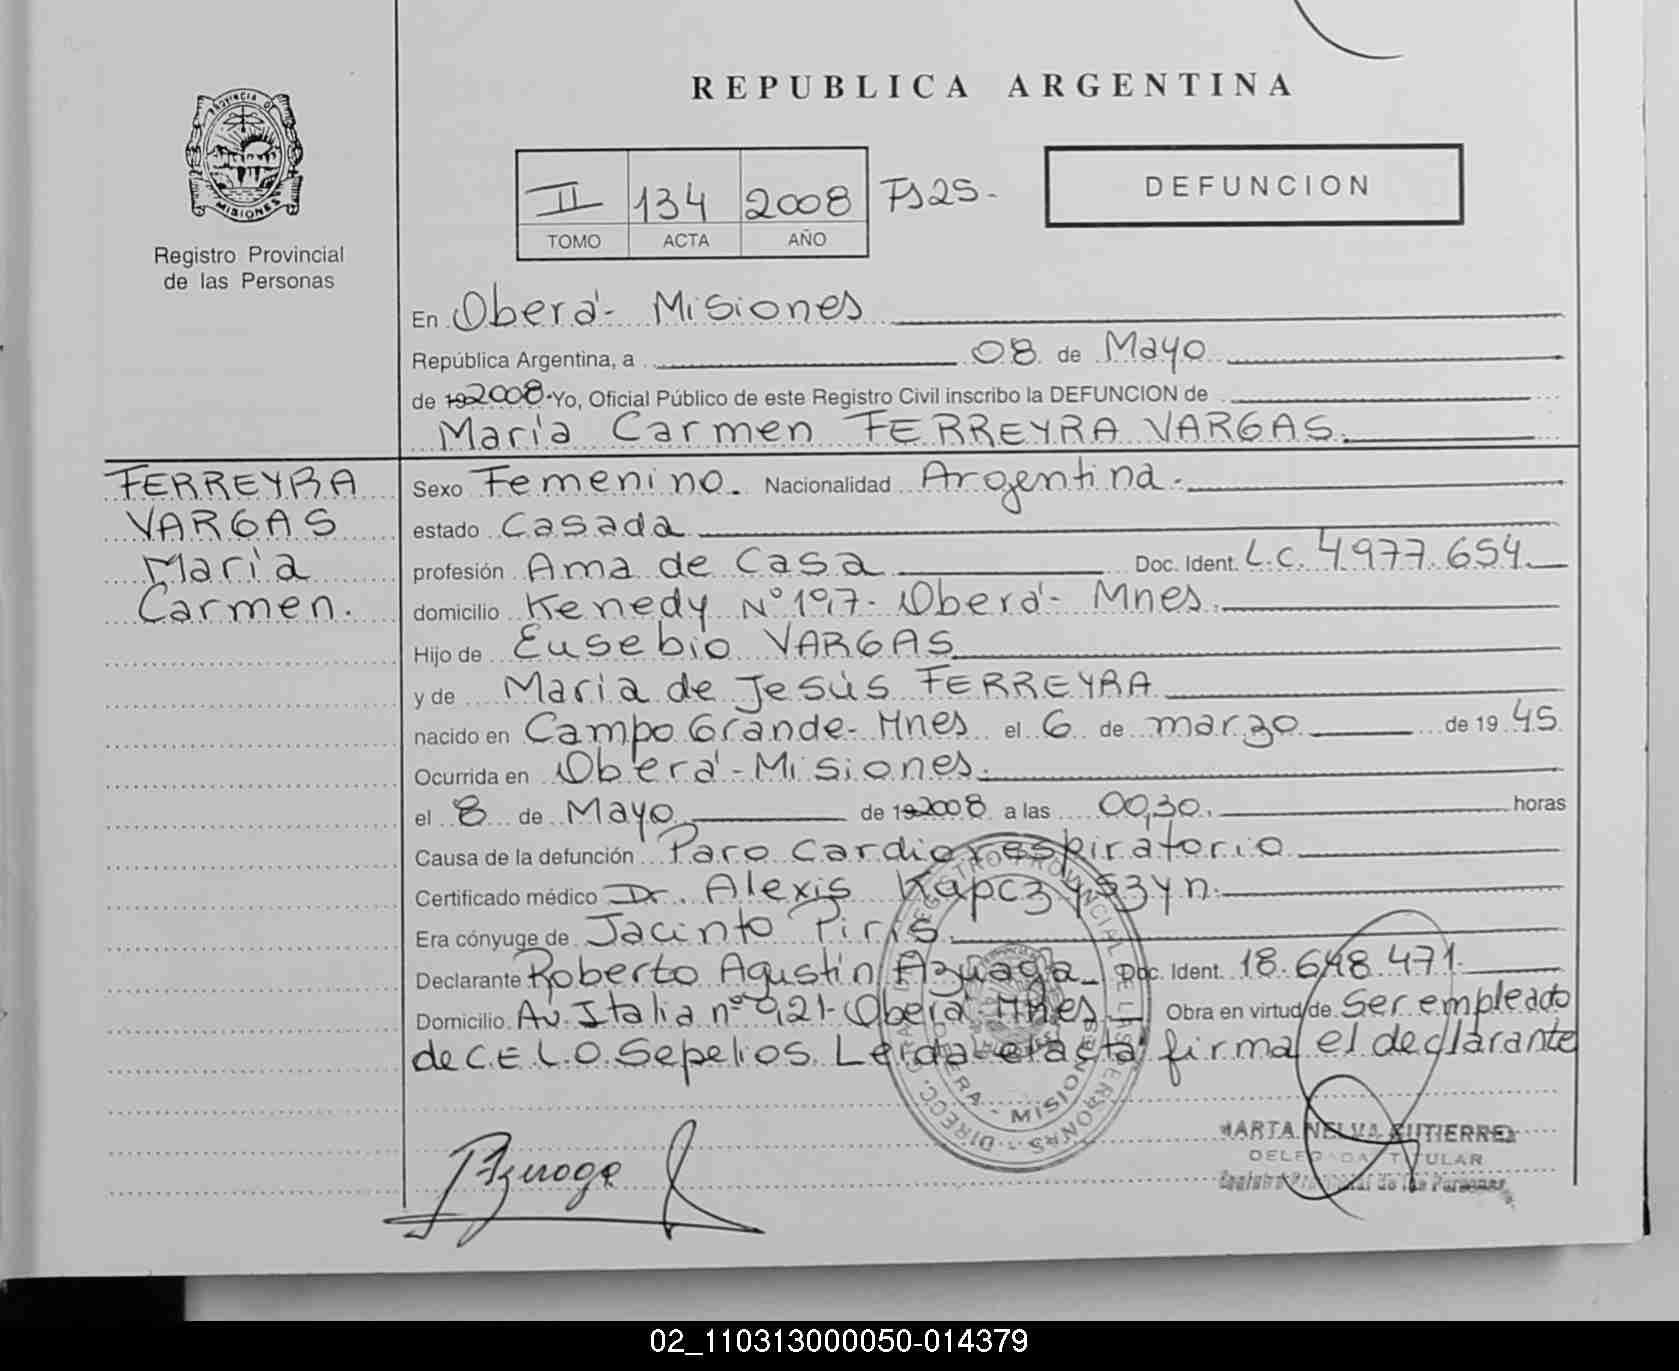 REPUBLICA ARGENTINA
PROVINCIA DE
MISIONES
Registro Provincial
de las Personas
II 134 2008 Fs 25-
TOMO ACTA AÑO
DEFUNCION
En Oberá- Misiones
República Argentina, a 08 de Mayo
de 19 2008. Yo, Oficial Público de este Registro Civil inscribo la DEFUNCION de
María Carmen FERREYRA VARGAS.
FERREYRA
VARGAS
María
Carmen.
Sexo Femenino. Nacionalidad Argentina.
estado Casada
profesión Ama de Casa Doc. Ident. L.C. 4.977.654.
domicilio Kenedy Nº 197- Oberá- Mnes.
Hijo de Eusebio VARGAS
y de María de Jesús FERREYRA
nacido en Campo Grande- Mnes el 6 de marzo de 19 45
Ocurrida en Oberá-Misiones.
el 8 de Mayo de 19 2008 a las 00,30. horas
Causa de la defunción Paro Cardiorespiratorio
Certificado médico Dr. Alexis Kapczyszyn.
Era cónyuge de Jacinto Piris.
Declarante Roberto Agustín Azuaga Doc. Ident. 18.648.471.
Domicilio Av. Italia nº 921- Oberá Mnes Obra en virtud de Ser empleado
de C.E.L.O. Sepelios. Leida el acta firma el declarante
DIRECC. GRAL. REGISTRO PROVINCIAL DE LAS PERSONAS
OBERA - MISIONES
Azuaga
MARTA NELVA GUTIERREZ
DELEGADA TITULAR
Registro Provincial de las Personas
02_110313000050-014379